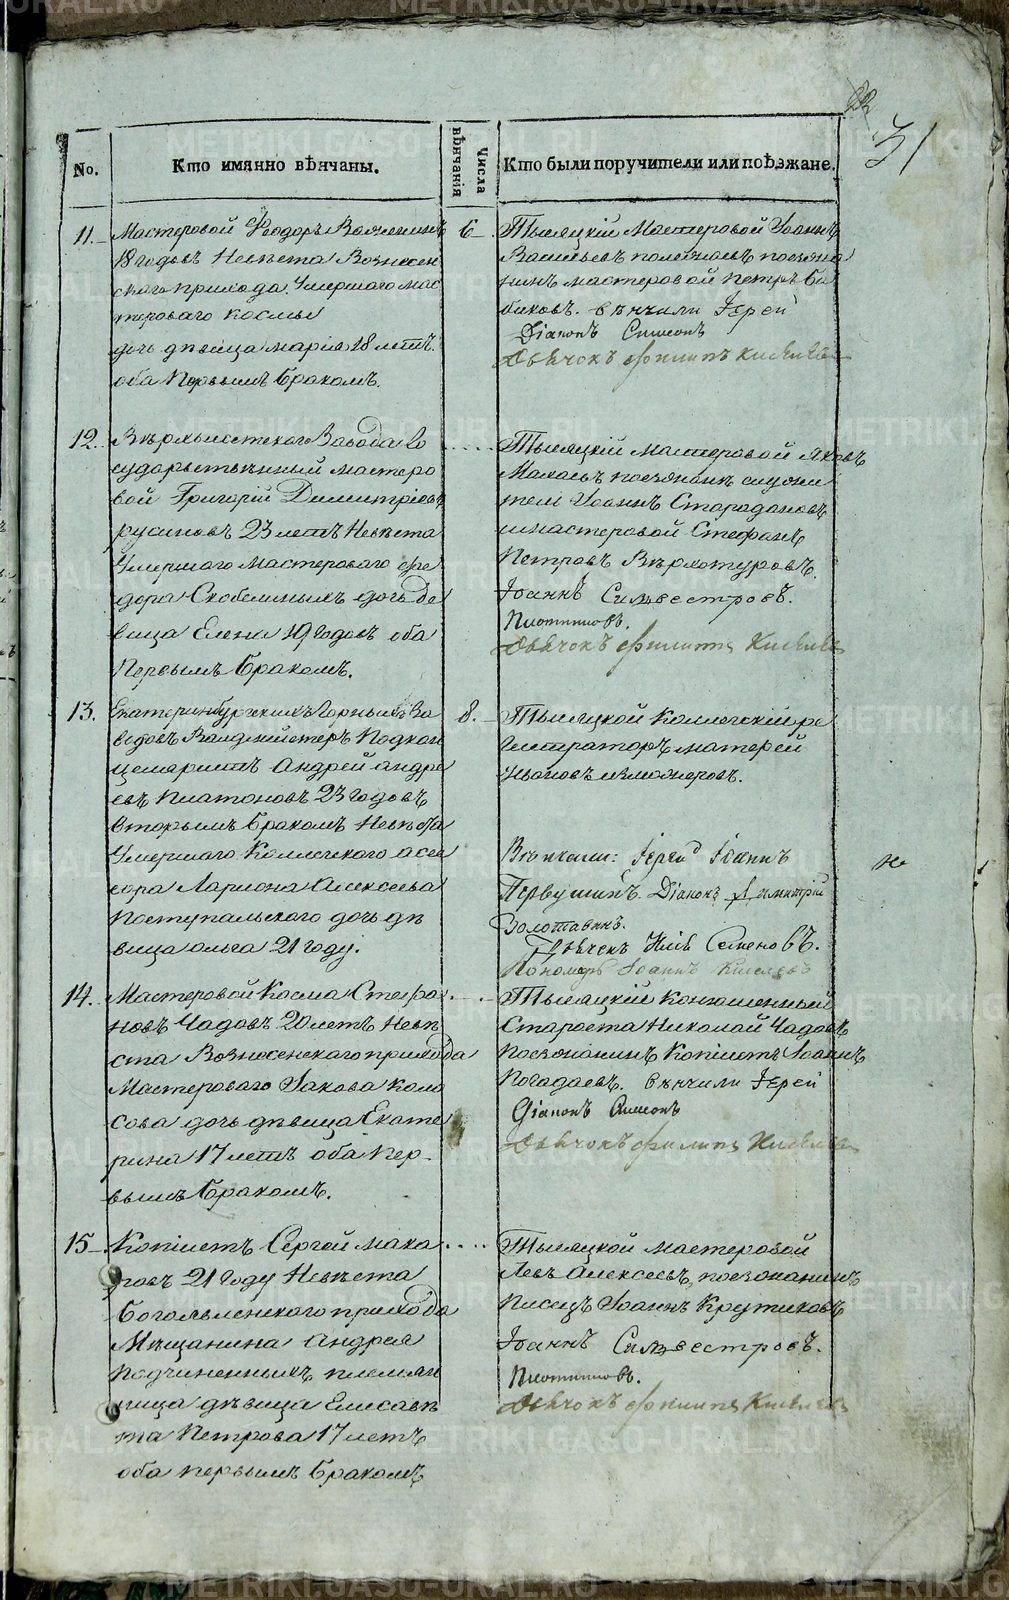 31
No.
Кто имянно вѣнчаны.
Числа вѣнчанія
Кто были поручители или поѣзжане.
11.
Мастеровой Ѳеодоръ
18 годовъ Невѣста Вознесен
скаго прихода Умершаго мас
тероваго Космы
дочь дѣвица Марія 18 летъ
оба Первымъ бракомъ.
6
Тысяцкій Мастеровой Іоаннъ
Васильевъ поезжа
нинъ мастеровой Петръ Ба
биковъ. вѣнчали Іерей
Діаконъ Симеонъ
Дьячокъ Филипъ Киселевъ
12.
Верхъисетскаго Завода Го
сударственный мастеро
вой Григорій Димитріевъ
Русиновъ 23 летъ Невѣста
Умершаго Мастероваго Фео
дора Скобелиныхъ дочь де
вица Елена 19 годовъ оба
Первымъ бракомъ.
Тысяцкій мастеровой Яковъ
поезжанинъ служи
тель Іоаннъ Старадановъ
и мастеровой Стефанъ
Петровъ Верхотуровъ.
Іоаннъ Сильвестровъ.
Плотниковъ.
Дьячокъ Филипъ Киселевъ
13.
Екатеринбургскихъ Горныхъ За
водовъ Валдмейстеръ Подкан
целяристъ Андрей Андре
евъ Платоновъ 23 годовъ
вторымъ бракомъ Невѣста
Умершаго Коллежскаго асес
сора Лариона Алексеева
Поступальскаго дочь дѣ
вица Ольга 21 году.
8.
Тысяцкой Коллежскій ре
гистраторъ
Ивановъ
Вѣнчали: Іерей Іоаннъ
Первушинъ. Діаконъ Димитрій
Золотавинъ.
Дьячекъ Илія Семеновъ.
Пономарь Іоаннъ Киселевъ
14.
Мастеровой Косма Стефа
новъ Чадовъ 20 летъ Невѣ
ста Вознесенскаго прихода
Мастероваго Іакова Коло
сова дочь дѣвица Екате
рина 17 летъ оба пер
вымъ бракомъ.
Тысяцкій Конюшенный
Староста Николай Чадовъ
поезжанинъ Копіистъ Іоаннъ
Погадаевъ. вѣнчили Іерей
Діаконъ Симеонъ
Дьячокъ Филипъ Киселевъ
15
Копіистъ Сергей Мака
ровъ 21 году Невѣста
Богоявленскаго прихода
Мѣщанина Андрея
Подчиненныхъ племян
ница дѣвица Елисаве
та Петрова 17 летъ
оба первымъ бракомъ
Тысяцкой мастеровой
Левъ Алексеевъ, поезжанинъ
Писецъ Іоаннъ Крутиковъ
Іоаннъ Сильвестровъ.
Плотниковъ.
Дьячокъ Филипъ Киселевъ
METRIKI.GASU-URAL.RU